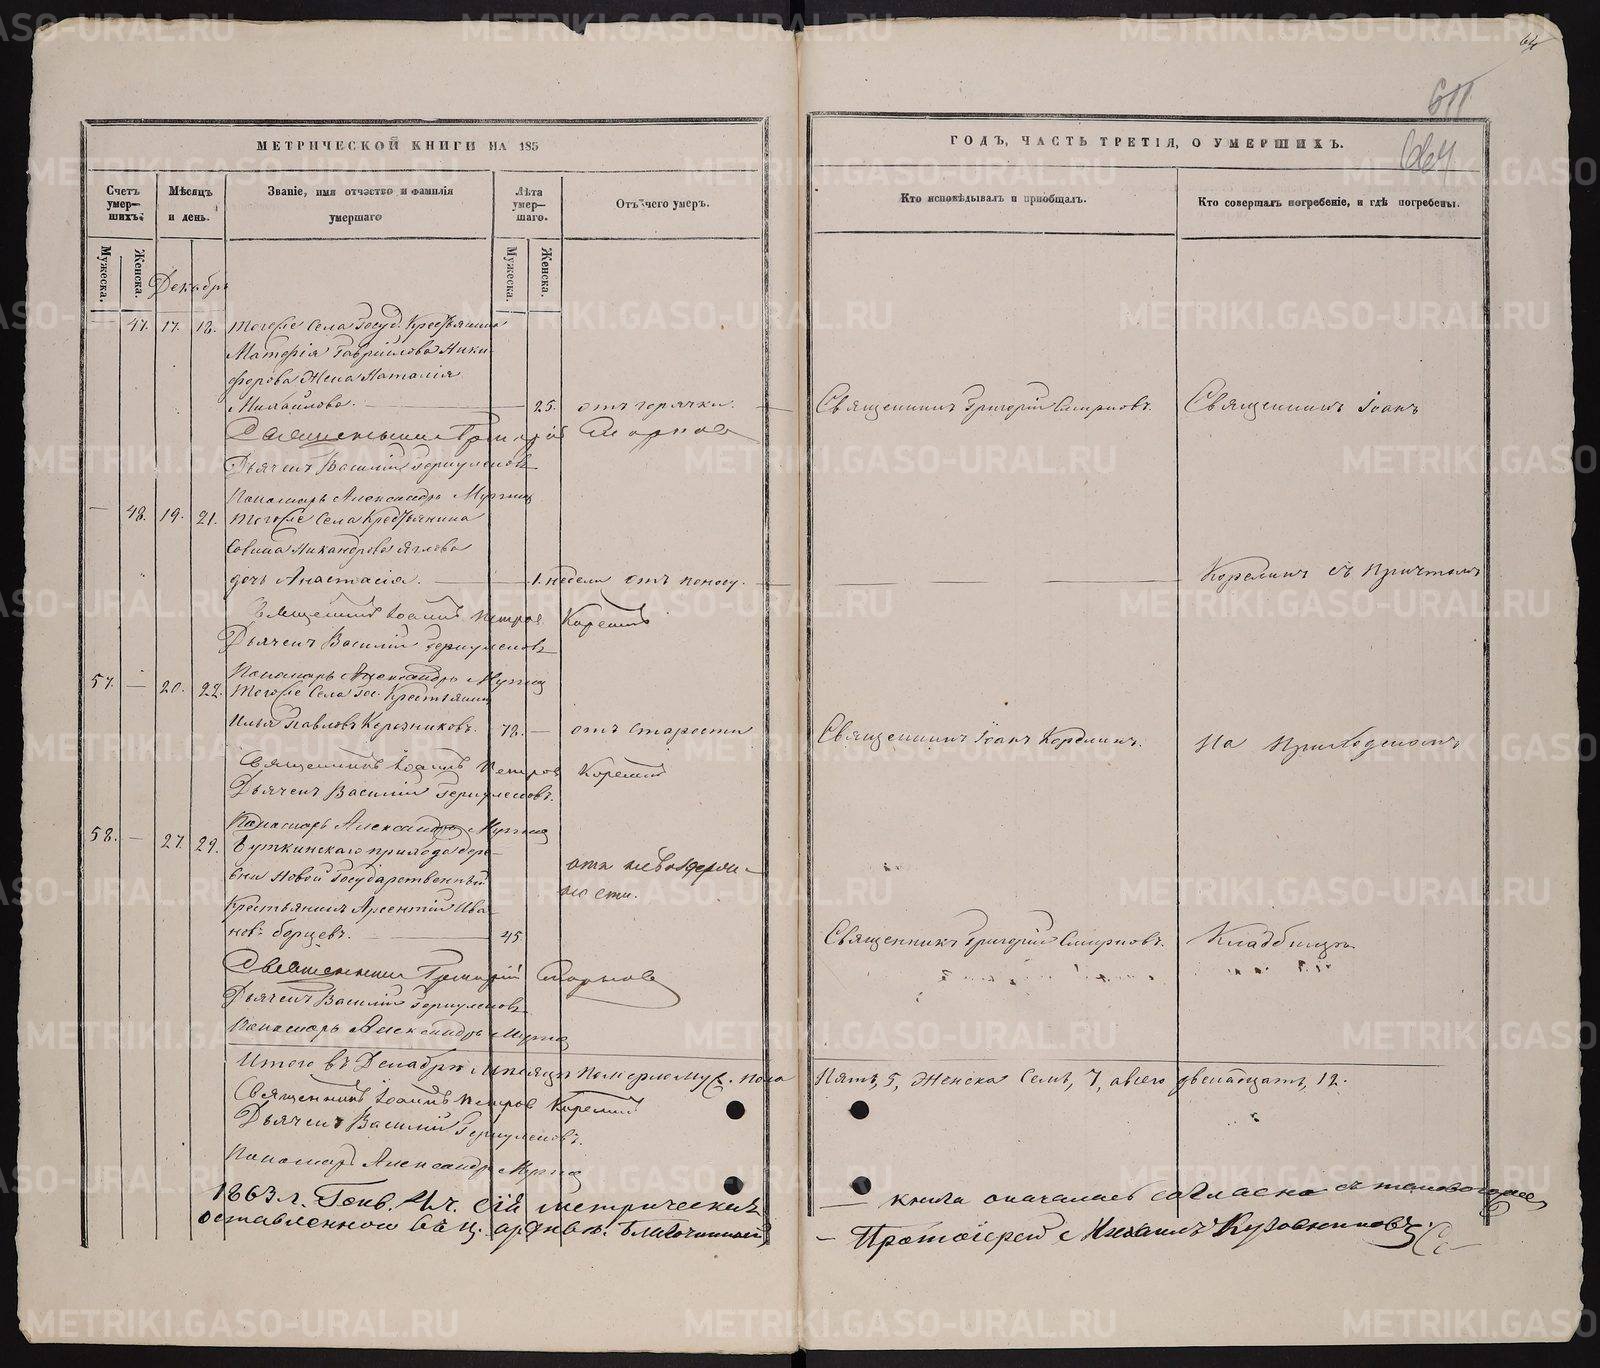 64
611
664
МЕТРИЧЕСКОЙ КНИГИ НА 185
ГОДЪ, ЧАСТЬ ТРЕТІЯ, О УМЕРШИХЪ.
Счетъ умер—шихъ.
Мѣсяцъ и день.
Званіе, имя отчество и фамилія умершаго
Лѣта умер—шаго.
Отъ чего умеръ.
Кто исповѣдывалъ и пріобщалъ.
Кто совершалъ погребеніе, и гдѣ погребены.
Мужеска.
Женска.
Мужеска.
Женска.
Декабрь
— 47. 17. 18. Тогоже Села Госуд. Крестьянина
Матфія Гаврилова Ники-
форова Жена Наталія
Михайлова. — 25. отъ горячки. — Священникъ Григорій Смирновъ. Священникъ Іоанъ
Священникъ Григорій Смирнов
Дьячекъ Василій
Пономарь Александръ
— 48. 19. 21. Тогоже Села Крестьянина
Савина Никандрова
дочь Анастасія. — 1. недели отъ поносу. — Корелинъ съ Причтомъ
Священникъ Іоаннъ Петров Корелинъ
Дьячекъ Василій
Пономарь Александръ
57. — 20. 22. Тогоже Села Гос. Крестьянинъ
Илья Павловъ 78. — отъ старости Священникъ Іоанъ Корелинъ. На Приходскомъ
Священникъ Іоаннъ Петров Корелинъ
Дьячекъ Василій
Пономарь Александръ
58. — 27. 29. Буткинскаго прихода дере-
вни Новой Государственный
Крестьянинъ Арсентій Ива-
новъ 45 отъ невоздержн-
ности. Священникъ Григорій Смирновъ. Кладбищѣ
Священникъ Григорій Смирнов
Дьячекъ Василій
Пономарь Александръ
Итого въ Декабрѣ Мѣсяцѣ Померло Муж. пола Пять, 5, Женска Семь, 7, а всего двенатцать, 12.
Священникъ Іоаннъ Петров Корелинъ
Дьячекъ Василій
Пономарь Александръ
1863 г. Генв. 4 ч. сія метрическая — книга оказалась согласна съ таковою же
оставленною въ ц. архивѣ. Благочинный — Протоіерей Михаилъ
METRIKI.GASO-URAL.RU